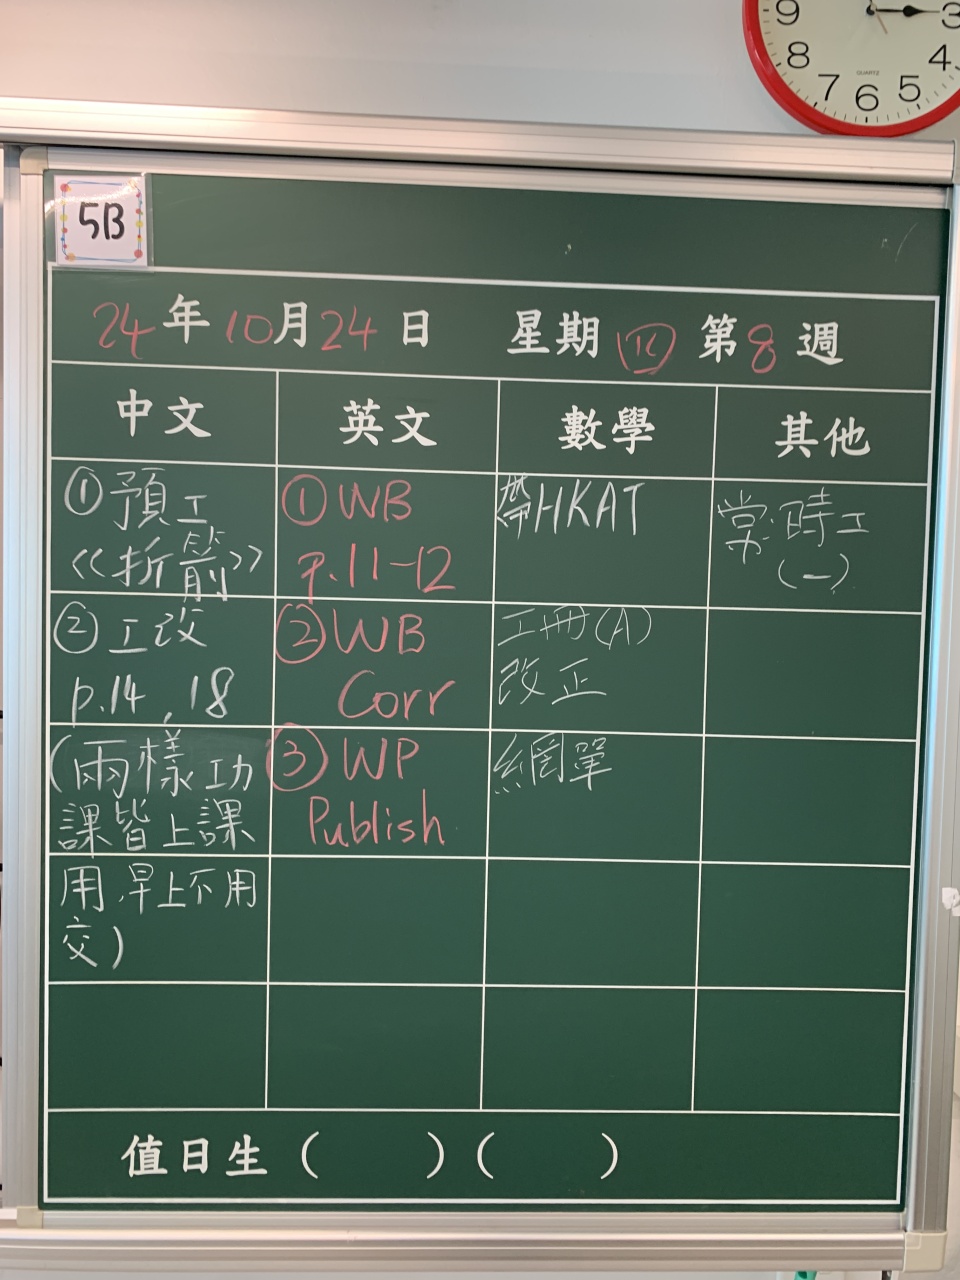 9
3
8
4
7
6
5
QUARTZ
5B
24年10月24日 星期四 第8週
中文 英文 數學 其他
①預工
《折箭》
②工改
p.14, 18
(兩樣功
課皆上課
用,早上不用
交)
①WB
p.11-12
②WB
Corr
③WP
Publish
帶HKAT
工冊(A)
改正
網單
常:時工
(一)
值日生 ( ) ( )